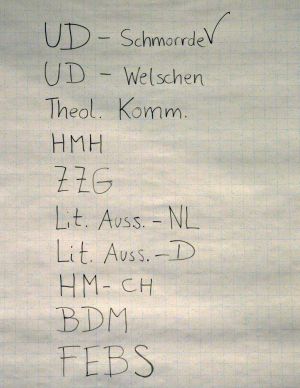 UD - Schmorrde√
UD - Welschen
Theol. Komm.
HMH
ZZG
Lit. Auss. - NL
Lit. Auss. - D
HM - CH
BDM
FEBS